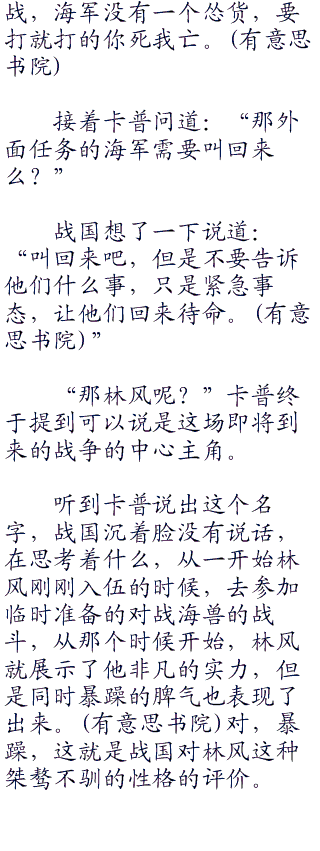 战，海军没有一个怂货，要
打就打的你死我亡。(有意思
书院)
接着卡普问道：“那外
面任务的海军需要叫回来
么？”
战国想了一下说道：
“叫回来吧，但是不要告诉
他们什么事，只是紧急事
态，让他们回来待命。(有意
思书院)”
“那林风呢？”卡普终
于提到可以说是这场即将到
来的战争的中心主角。
听到卡普说出这个名
字，战国沉着脸没有说话，
在思考着什么，从一开始林
风刚刚入伍的时候，去参加
临时准备的对战海兽的战
斗，从那个时候开始，林风
就展示了他非凡的实力，但
是同时暴躁的脾气也表现了
出来。(有意思书院)对，暴
躁，这就是战国对林风这种
桀骜不驯的性格的评价。